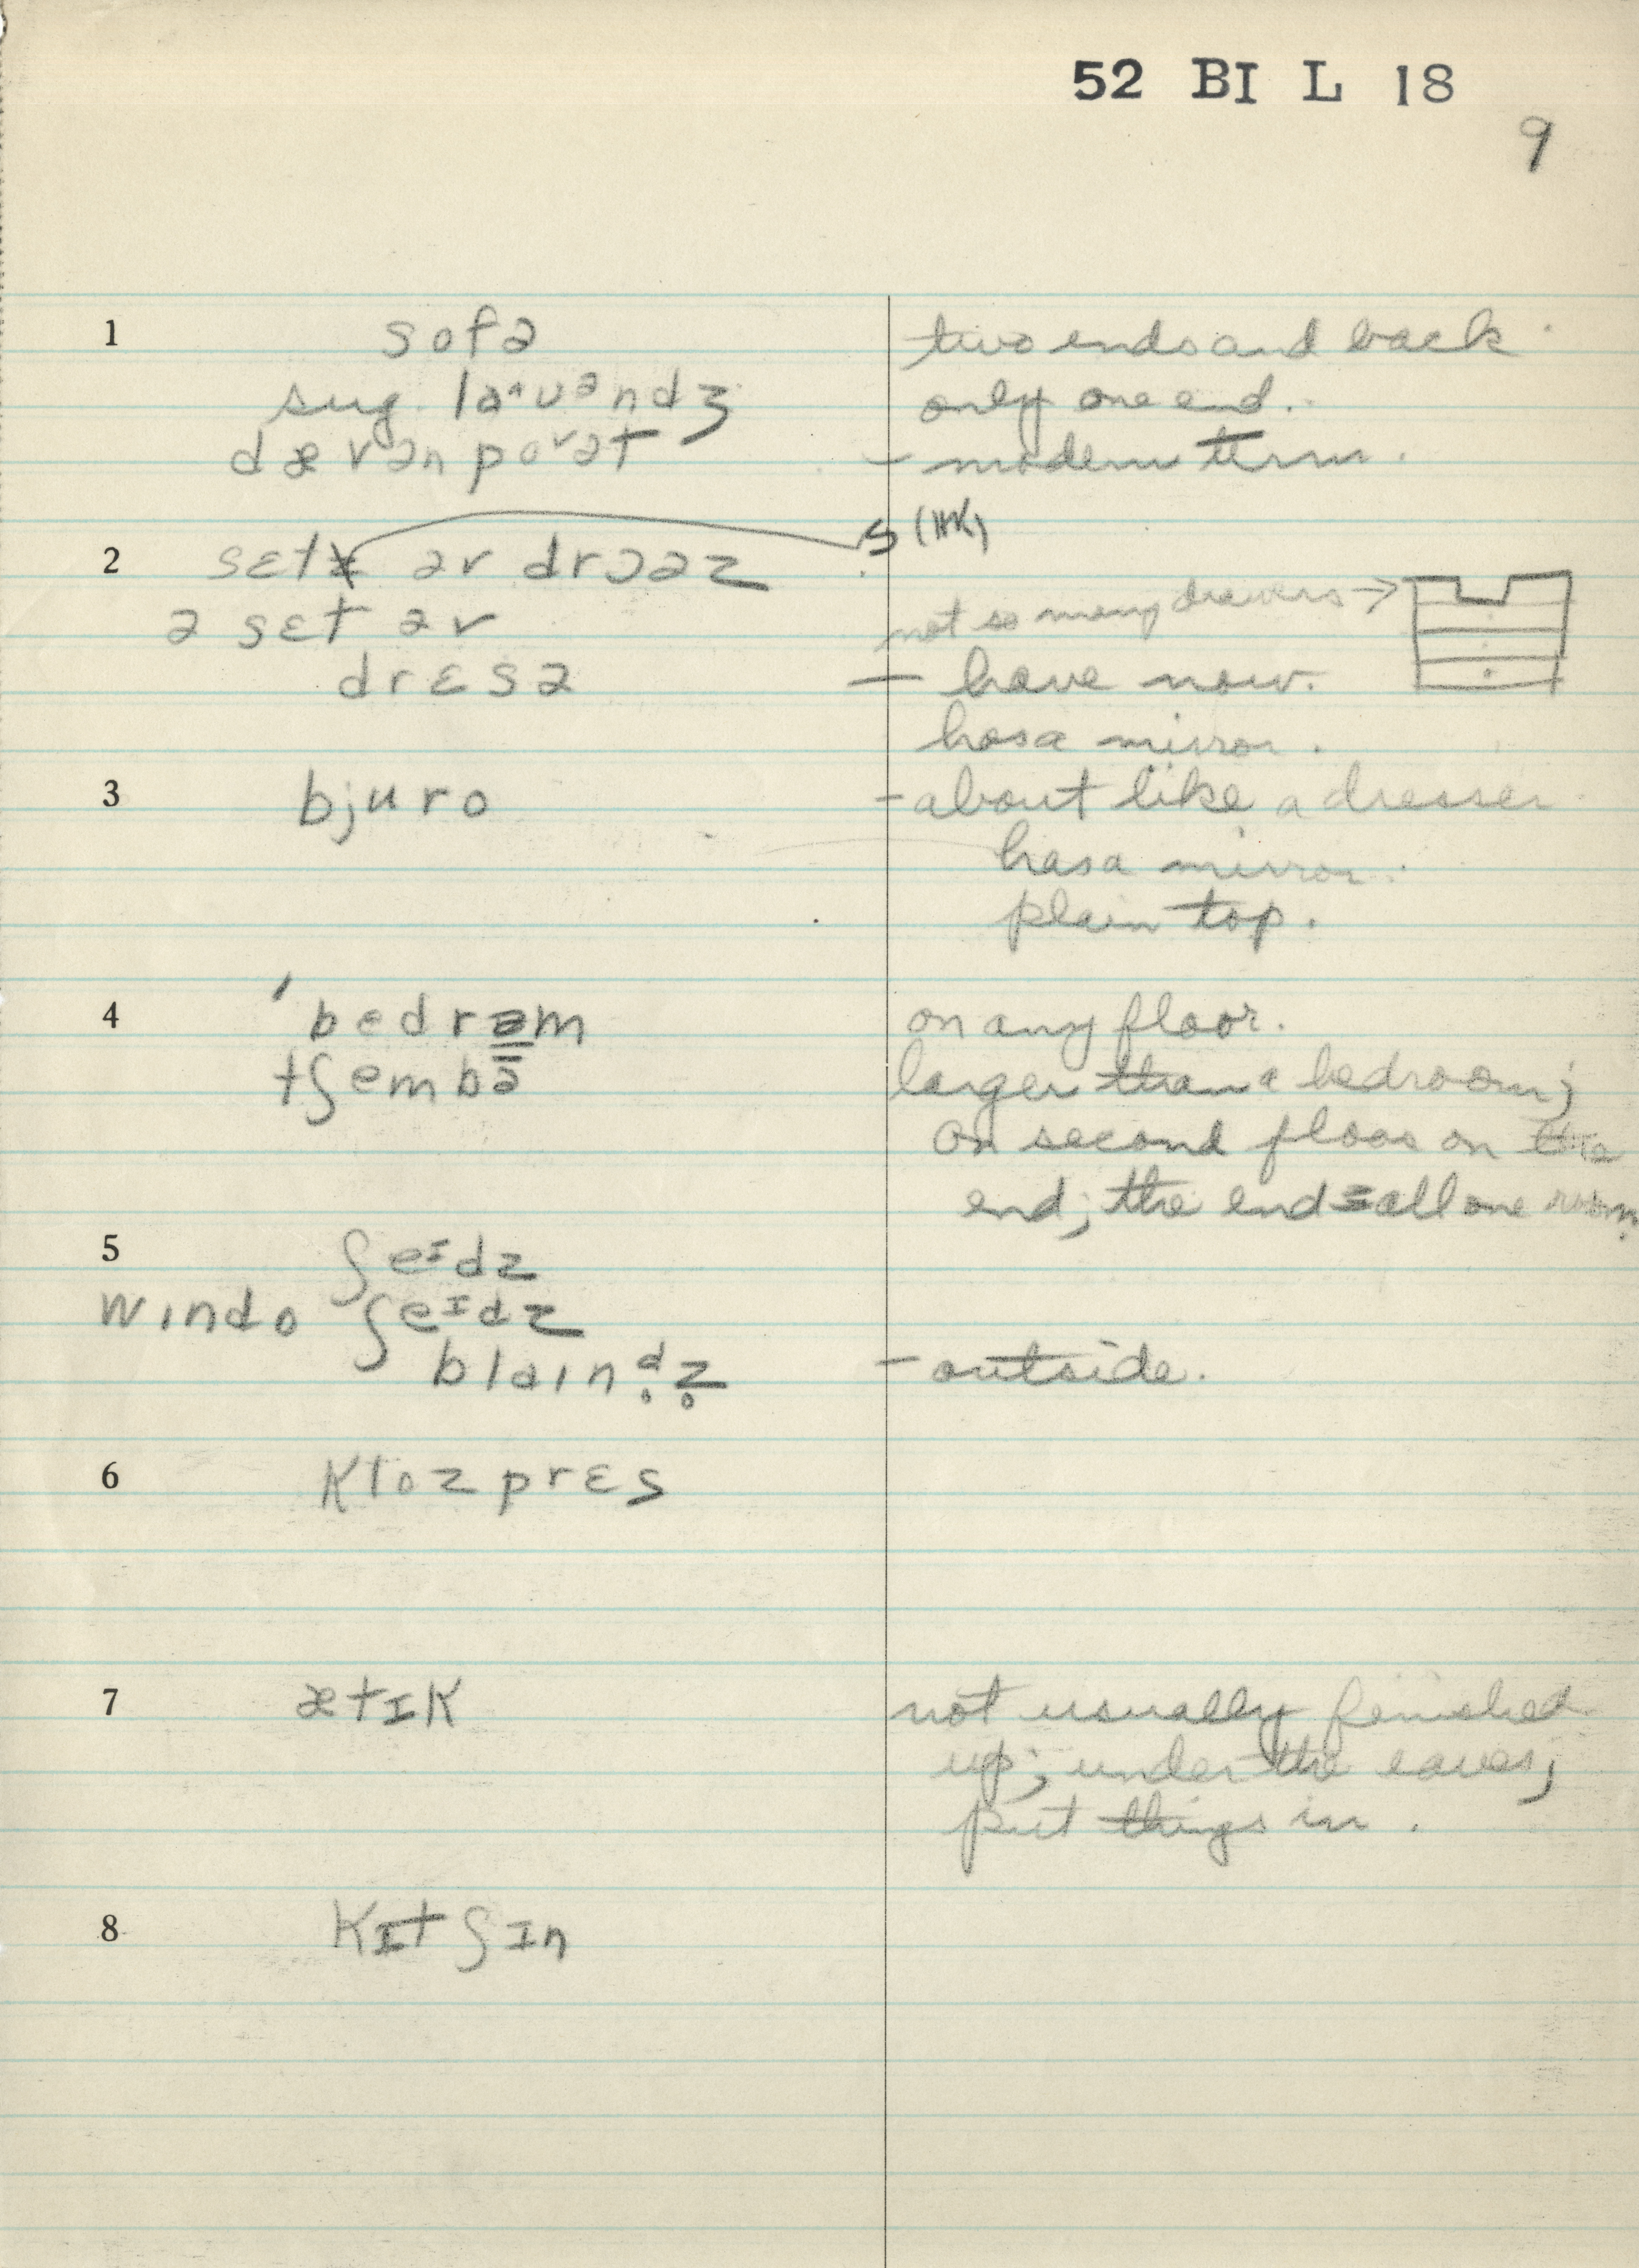 52 BI L 18
9
1 sofə two ends and back
sug. laˑᴧuəndʒ only one end.
dævənpoᵛət – modern term.
s (HK)
2 sɛt əv drɔəz
not so many drawers →
ə sɛt əv
drɛsə – have now.
has a mirror.
3 bjuro – about like a dresser
has a mirror.
plain top.
4 ˈbedrəm on any floor.
tʃembə larger than a bedroom;
on second floor on the
end; the end = all one room.
5 ʃeɪdz
windo ʃeɪdz
blaindz – outside.
6 klozprɛs
7 ætɪk not usually finished
up; under the eaves;
put things in.
8 kɪtʃɪn